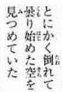 とにかく倒れて
曇り始めた空を
見つめていた